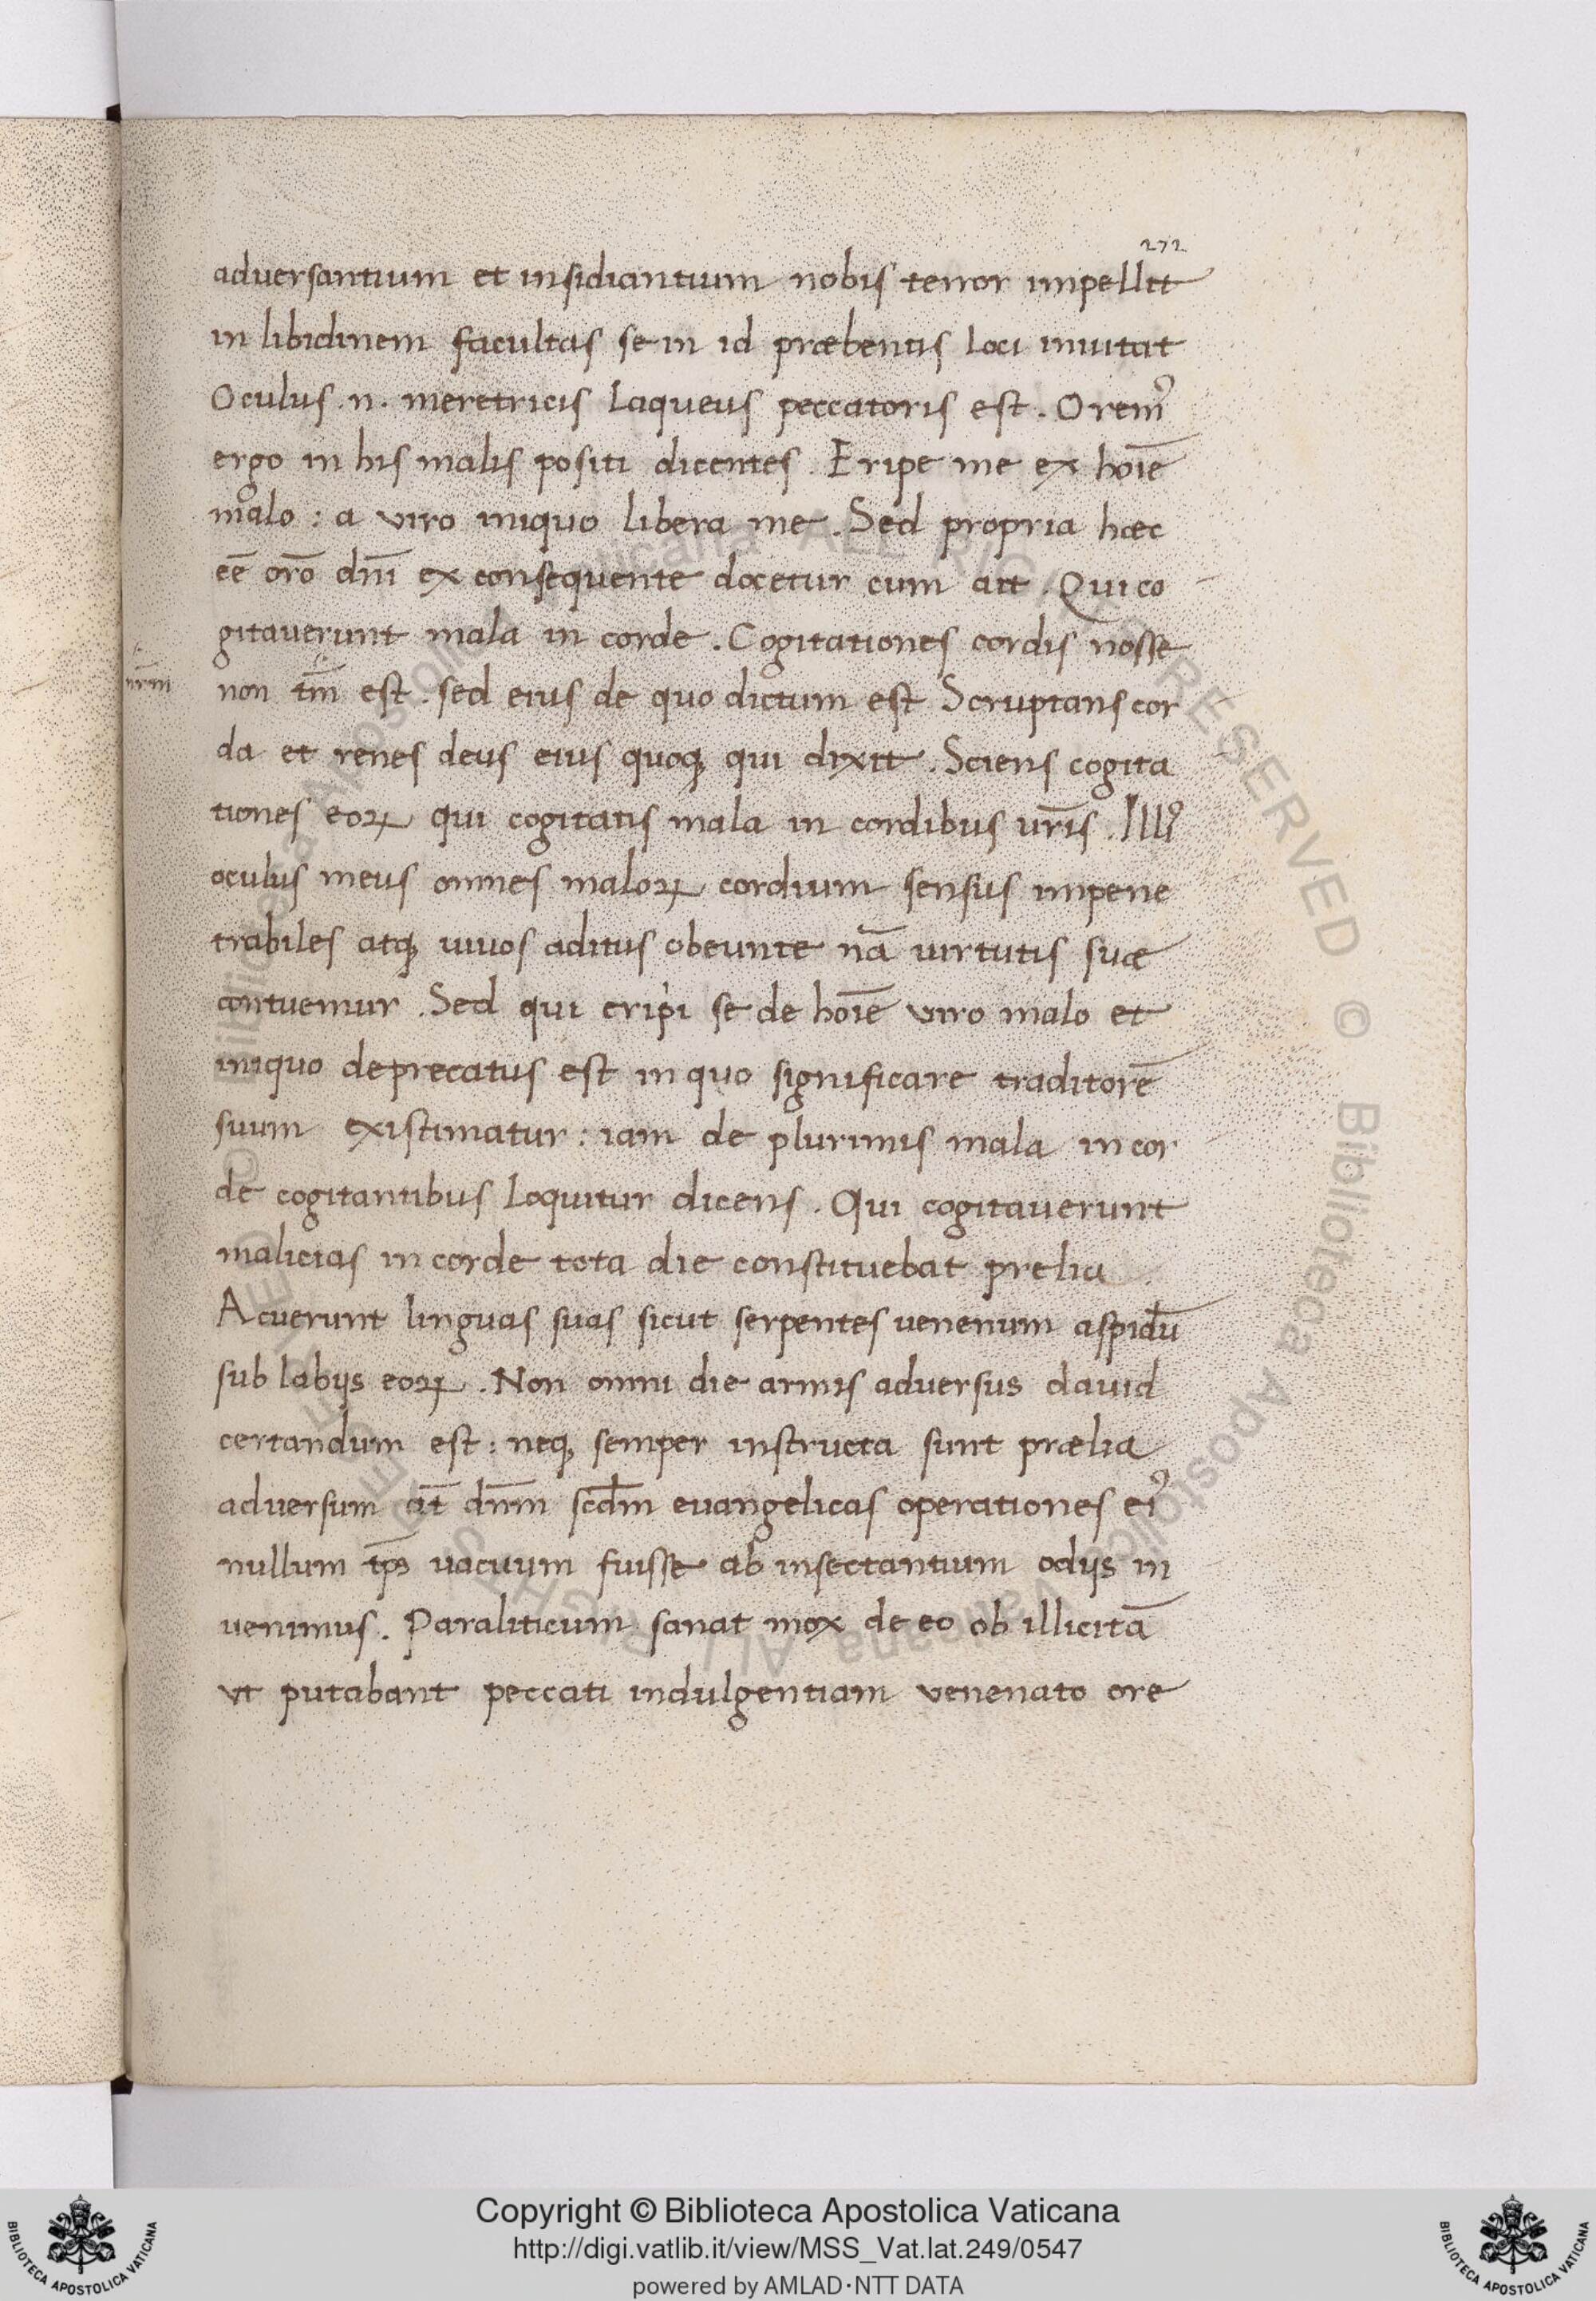 272
adversantium et insidiantium nobis terror impellit
in libidinem facultas se in id præbentis loci inuitat
Oculus .n. meretricis laqueus peccatoris est . Orem᾿
ergo in his malis positi dicentes . Eripe me ex hoı̄e
malo : a viro iniquo libera me . Sed propria hæc
eē̄ orō dn̄i ex consequente docetur cum ait . Qui co
gitauerunt mala in corde . Cogitationes cordis nosse
nr̄m
non tm̄ est . sed eius de quo dictum est Scruptans cor
da et renes deus eius quoq; qui dixit . Sciens cogita
tiones eoꝝ qui cogitatis mala in cordibus ur̄is . Illi᾿
oculus meus omnes maloꝝ cordium sensus impene
trabiles atq; uiuos aditus obeunte nā uirtutis suæ
contuemur . Sed qui eripi se de hoı̄e viro malo et
iniquo deprecatus est in quo significare traditorē
suum existimatur : iam de plurimis mala in cor
de cogitantibus loquitur dicens . Qui cogitauerunt
malicias in corde tota die constituebat prelia
Acuerunt linguas suas sicut serpentes uenenum aspidū
sub labijs eoꝝ . Non omni die armis adversus dauid
certandum est : neq; semper instructa sunt prælia
adversum at̄ dn̄m scd̄m euangelicas operationes ei᾿
nullum tp̄s uacuum fuisse ab insectantium odijs in
uenimus . Paraliticum sanat mox de eo ob illicitā
vt putabant peccati indulgentiam venenato ore
Copyright © Biblioteca Apostolica Vaticana
http://digi.vatlib.it/view/MSS_Vat.lat.249/0547
powered by AMLAD·NTT DATA
BIBLIOTECA APOSTOLICA VATICANA
BIBLIOTECA APOSTOLICA VATICANA